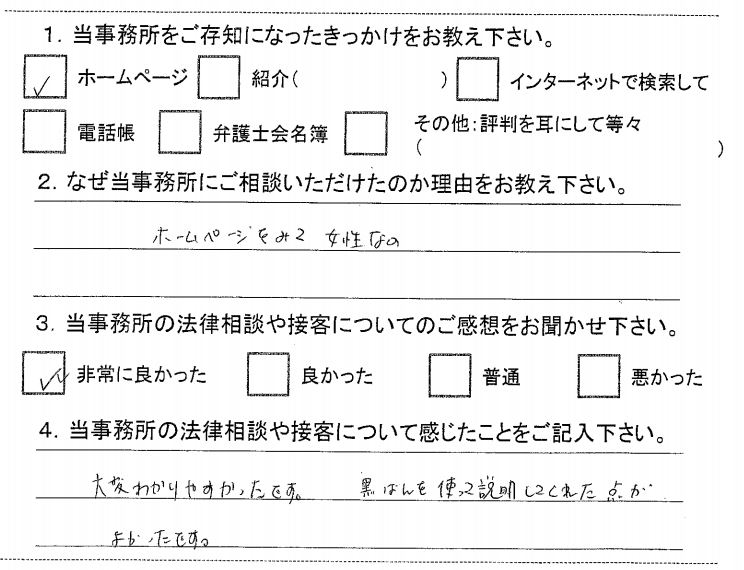 1. 当事務所をご存知になったきっかけをお教え下さい。
ホームページ 紹介( ) インターネットで検索して
電話帳 弁護士会名簿 その他:評判を耳にして等々
( )
2. なぜ当事務所にご相談いただけたのか理由をお教え下さい。
ホームページをみて 女性なの
3. 当事務所の法律相談や接客についてのご感想をお聞かせ下さい。
非常に良かった 良かった 普通 悪かった
4. 当事務所の法律相談や接客について感じたことをご記入下さい。
大変わかりやすかったです。 黒ばんを使って説明してくれた点が
よかったです。